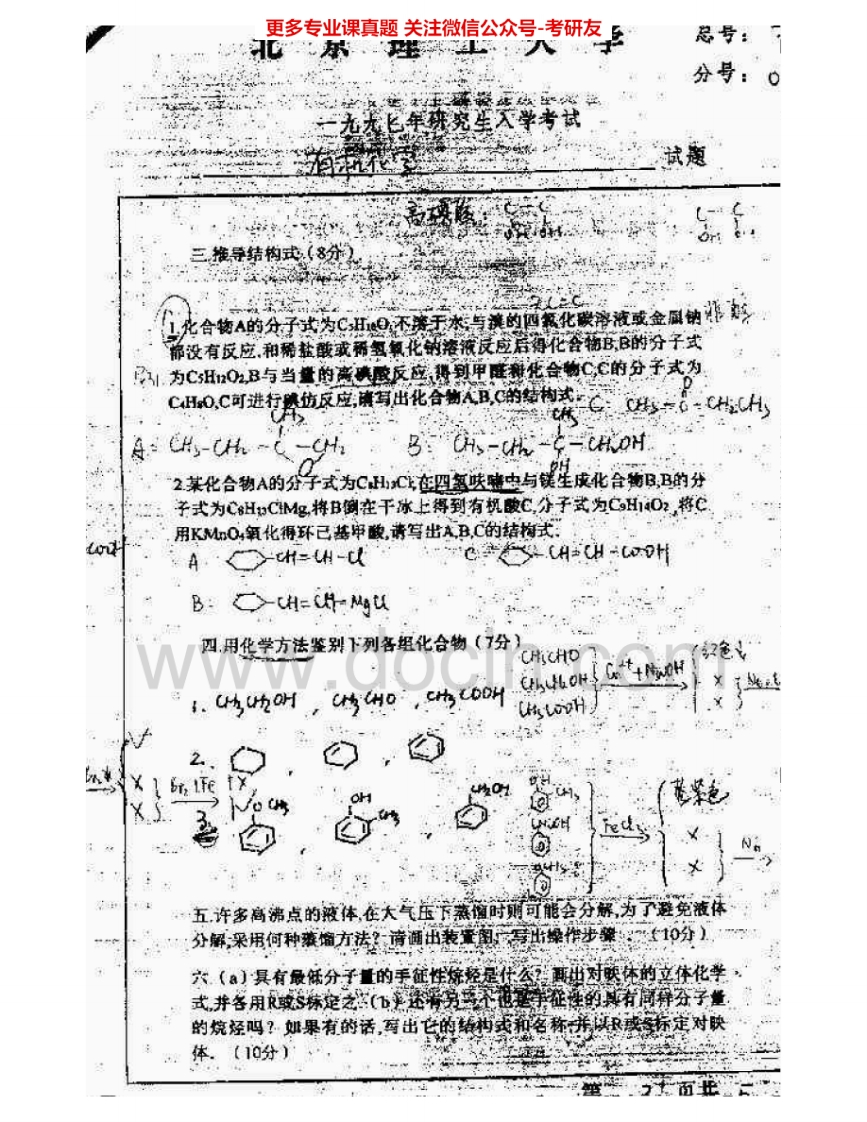 更多专业课真题 关注微信公众号-考研友
北京理工大学
总号:
分号: 0
一九九七年研究生入学考试
有机化学 试题
高碘酸: C-C
OH OH
三.推导结构式.(8分)
1.化合物A的分子式为C₅H₁₀O,不溶于水,与溴的四氯化碳溶液或金属钠
都没有反应,和稀盐酸或稀氢氧化钠溶液反应后得化合物B,B的分子式
为C₅H₁₂O₂,B与当量的高碘酸反应,得到甲醛和化合物C,C的分子式为
C₄H₈O,C可进行碘仿反应,请写出化合物A,B,C的结构式.
C. CH₃-C-CH₂CH₃
O
CH₃ CH₃
A= CH₃-CH₂-C-CH₂ B: CH₃-CH₂-C-CH₂OH
O OH
2.某化合物A的分子式为C₈H₁₃Cl,在四氢呋喃中与镁生成化合物B,B的分
子式为C₈H₁₃ClMg,将B倒在干冰上得到有机酸C,分子式为C₉H₁₄O₂,将C
用KMnO₄氧化得环己基甲酸,请写出A,B,C的结构式.
A. -CH=CH-Cl C. -CH=CH-COOH
B: -CH=CH-MgCl
四.用化学方法鉴别下列各组化合物(7分)
CH₃CHO
CH₃CH₂OH Cu²⁺+NaOH 红色↓
CH₃COOH × ×
1. CH₃CH₂OH , CH₃CHO , CH₃COOH
2. , ,
Br₂ Fe
3. OCH₃ , OH CH₃ , CH₂OH
OH CH₃
CH₂OH FeCl₃ 蓝紫色
OCH₃ × × Na
五.许多高沸点的液体,在大气压下蒸馏时则可能会分解,为了避免液体
分解,采用何种蒸馏方法?请画出装置图,写出操作步骤.(10分)
六.(a)具有最低分子量的手征性烷烃是什么?画出对映体的立体化学
式,并各用R或S标定之.(b)还有另一个也是手征性的具有同样分子量
的烷烃吗?如果有的话,写出它的结构式和名称,并以R或S标定对映
体.(10分)
www.docin.com
第 2 页共 5